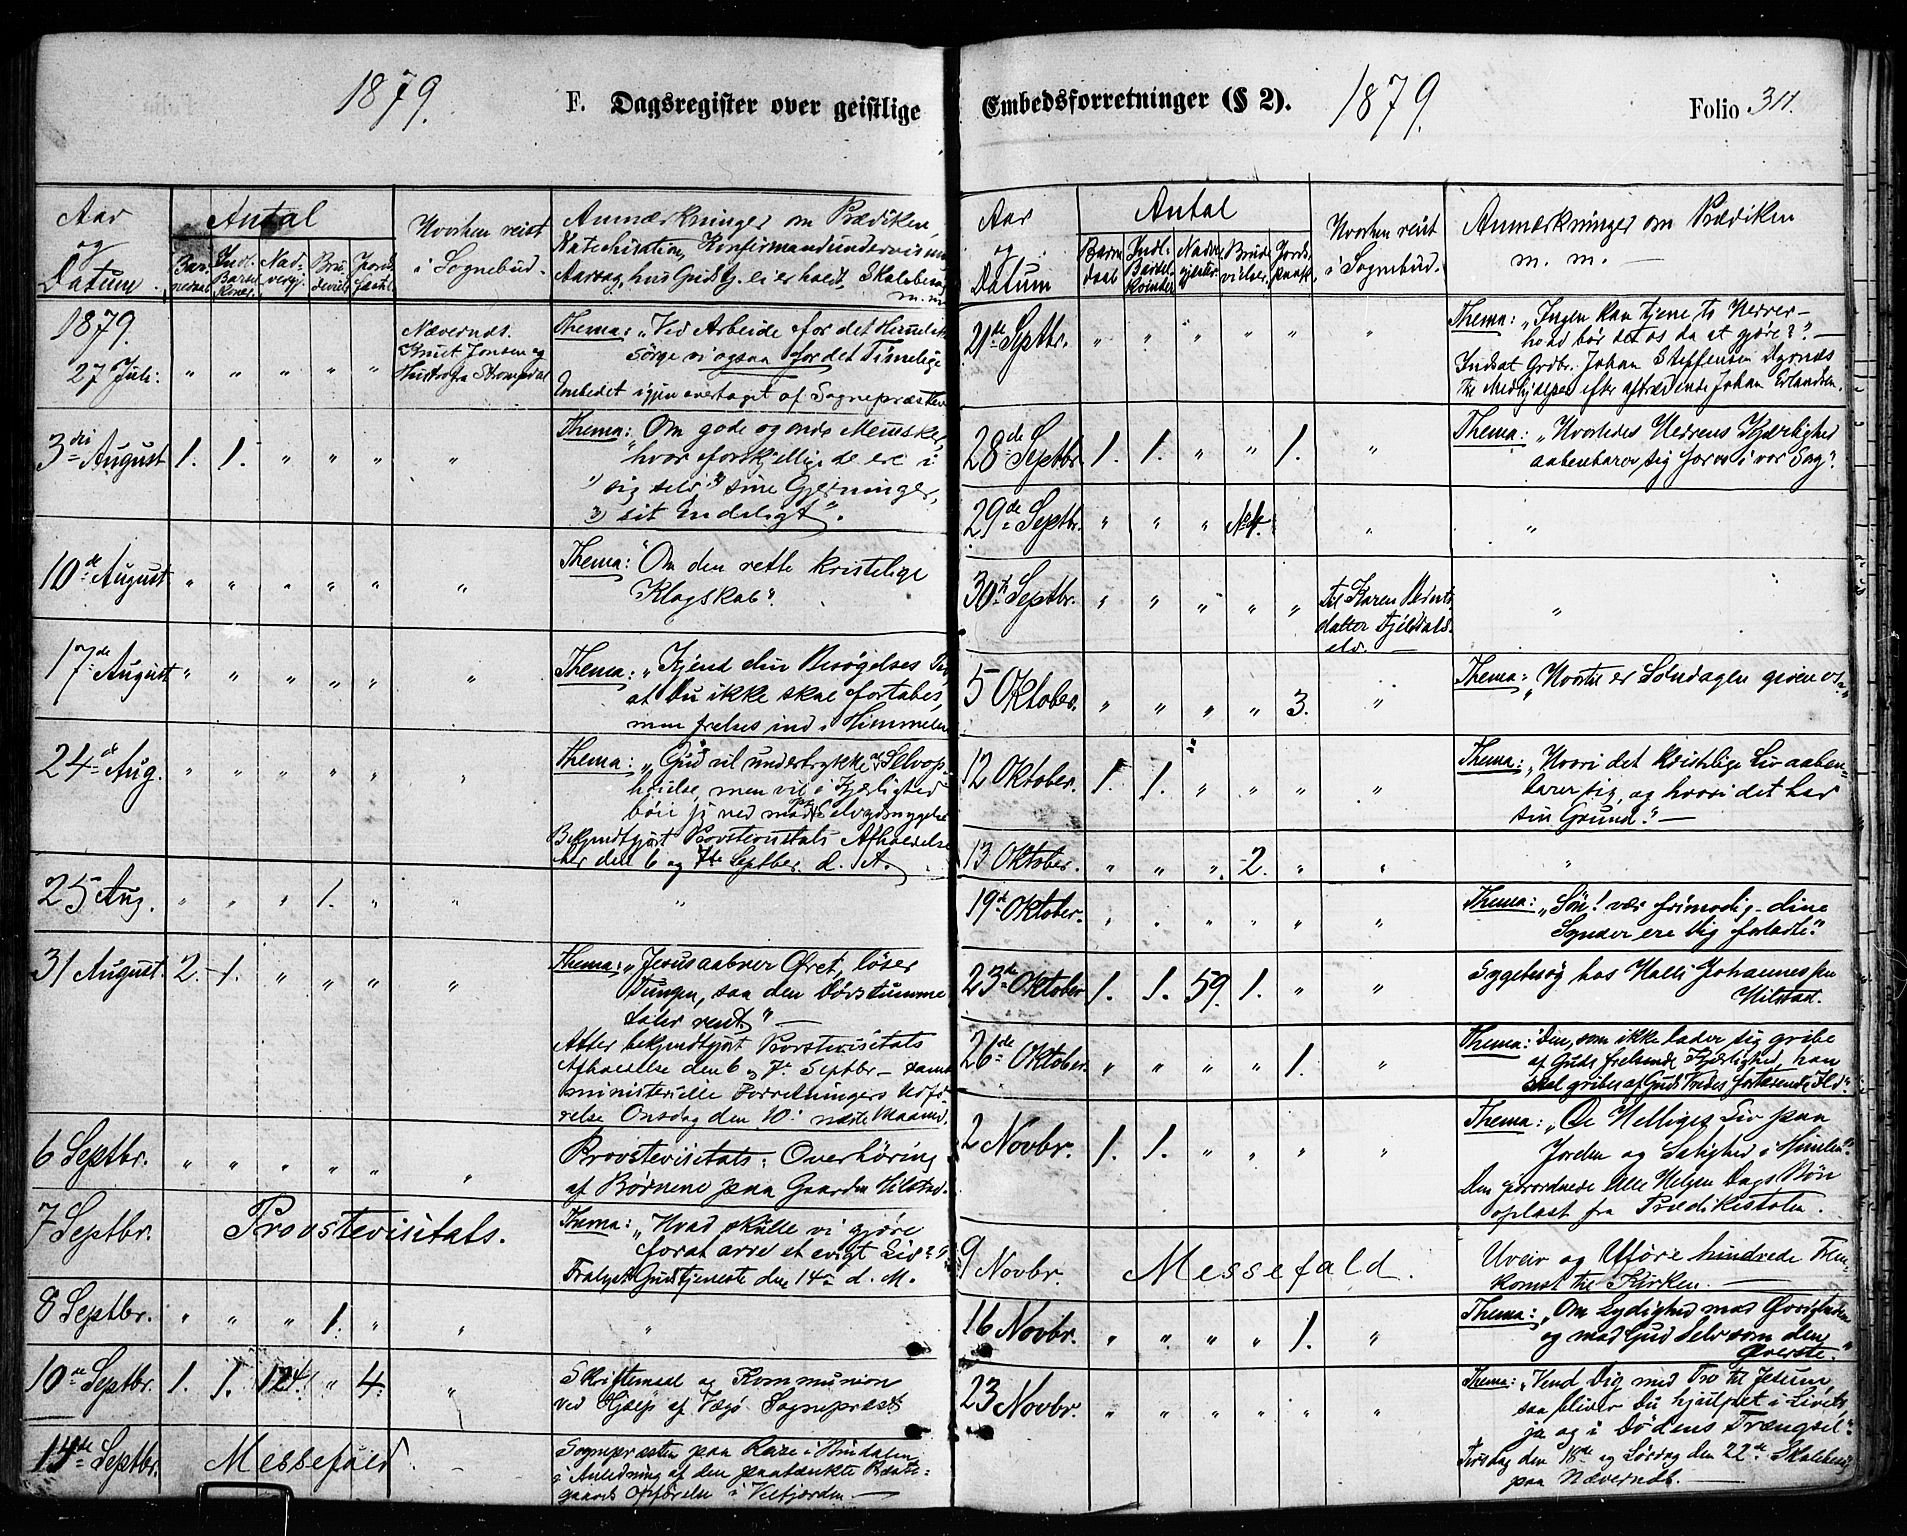 1879.
F. Dagsregister over geistlige
Aar
og
Datum.
Antal
Hvorhen reist
i Sognebud.
Anmærkninger om Prædiken,
Katechisation, Konfirmandundervisn.
Aarsag, hvis Gudstj. ei er holdt, Skolebesøg
m.m.
1879.
27 Juli: " " " " "
Nævernes.
Knut Jonsen og
Hustro fra Strompdal
Thema: „Ved Arbeide for det Himmelske
Sørge vi ogsaa for det Timelige
Embedet igjen overtaget af Sognepræsten
3die August 1. 1. " " " "
Thema: „Om gode og onde Mennsker,
hvor forskjellige de ere i
1) sig selv 2) sine Gjerninger,
3) sit Endeligt".
10de August " " " " " "
Thema: "Om den rette kristelige
Klogskab".
17de August " " " " " "
Thema: „Kjend din Besøgelses Tid,
at Du ikke skal fortabes,
men frelses ind i Himmelen
24de Aug. " " " " " "
Thema: „Gud vil undertrykke al Selvop-
høielse, men vil i Kjærlighed
bøie sig ned mod Selvydmygelse
Bekjendtgjort Provstevisitats Afholdelse
her den 6 og 7de Septber. d. A.
25 Aug. " " " 1. " " "
31 August. 2. 1. " " " "
Thema: „Jesus aabner Øret, løser
Tungen, saa den Døvstumme
taler ret"
Atter bekjendtgjort Provstevisitats
Afholdelse den 6 og 7de Septbr. samt
ministerielle Forretningers Udfø-
relse Onsdag den 10: næste Maaned.
6 Septbr. " " " " " "
Provstevisitats: Overhøring
af Børnene paa Gaarden Hilstad.
7 Septbr. Provstevisitats.
Thema: „Hvad skulle vi gjøre
for at arve et evigt Liv?"
Fralyst Gudstjeneste den 14de d. M.
8 Septbr. " " " 1. " " "
10de Septbr. 1. 1. 124. " 4. "
Skriftemaal og Kommunion
ved Hjælp af Vegø Sognepræst
14de Septbr. Messefald.
Sognepræsten paa Reise i Hindalen
i Anledning af den paatænkte Præste-
gaards Opførelse i Velfjorden.
Embedsforretninger (§ 2).
1879.
Folio 311.
Aar
og
Datum
Antal
Hvorhen reist
i Sognebud.
Anmærkninger om Prædiken
m. m.
21de Septbr. " " " " " "
Thema: „Ingen kan tjene to Herrer –
hvad bør det os da at gjøre?"
Indsat Grdbr. Johan Steffensen
til Medhjælper efter aftrædende Johan Erlandsen.
28de Septbr. 1. 1. " " 1. "
Thema: „Hvorledes Herrens Kjærlighed
aabenbarer sig for os i vor Sorg".
29de Septbr. " " " " "
30te Septbr. " " " " "
Til Karen Bernts
datter Fjeldals-
elv.
"
5 Oktober. " " " " 3. "
Thema: „Hvortil er Søndagen given os"
12 Oktober. 1. 1. " " " "
Thema: „Hvori det kristelige Liv aaben-
barer sig, og hvori det har
sin Grund".
13 Oktober. " " " 2. " " "
19de Oktober. " " " " " "
Thema: „Søn! vær frimodig – dine
Synder ere Dig forladte".
23de Oktober 1. 1. 59. 1. " "
Sygebesøg hos Halli Johannessen
Hilstad.
26de Oktober. " " " " 1. "
Thema: Den, som ikke lader sig gribe
af Guds frelsende Kjærlighed, han
skal gribes af Guds Vredes fortærende Ild".
2 Novbr. 1. 1. " " " "
Thema: „De Helliges Liv paa
Jorden og Salighed i Himlen".
Den forordnede Alle Helgen Dags Bøn
oplæst fra Prædikestolen.
9 Novbr. Messefald.
Uveir og Uføre hindrede Frem-
komst til Kirken.
16 Novbr. " " " " 1. "
Thema: „Om Lydighed mod Øvrigheden
og mod Gud selv som den
Øverste."
23 Novbr. " " " " " "
Thema: „Vend Dig med Tro til Jesum,
saa bliver Du hjulpet i Livets,
ja og i Dødens Trængsel".
Tirsdag den 18de og Lørdag den 22de Skolebesøg
paa Nævernes.